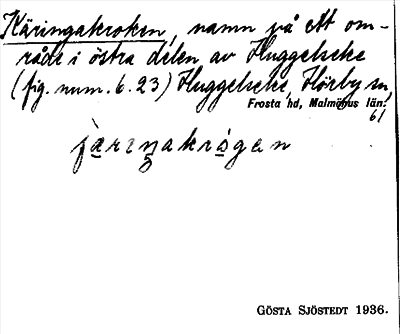 Käringakroken, namn på ett om-
råde i östra delen av Huggelseke
(fig. num. 6.23) Huggelseke, Hörby sn,
Frosta hd, Malmöhus län.
61
järiŋakrógen
GÖSTA SJÖSTEDT 1936.